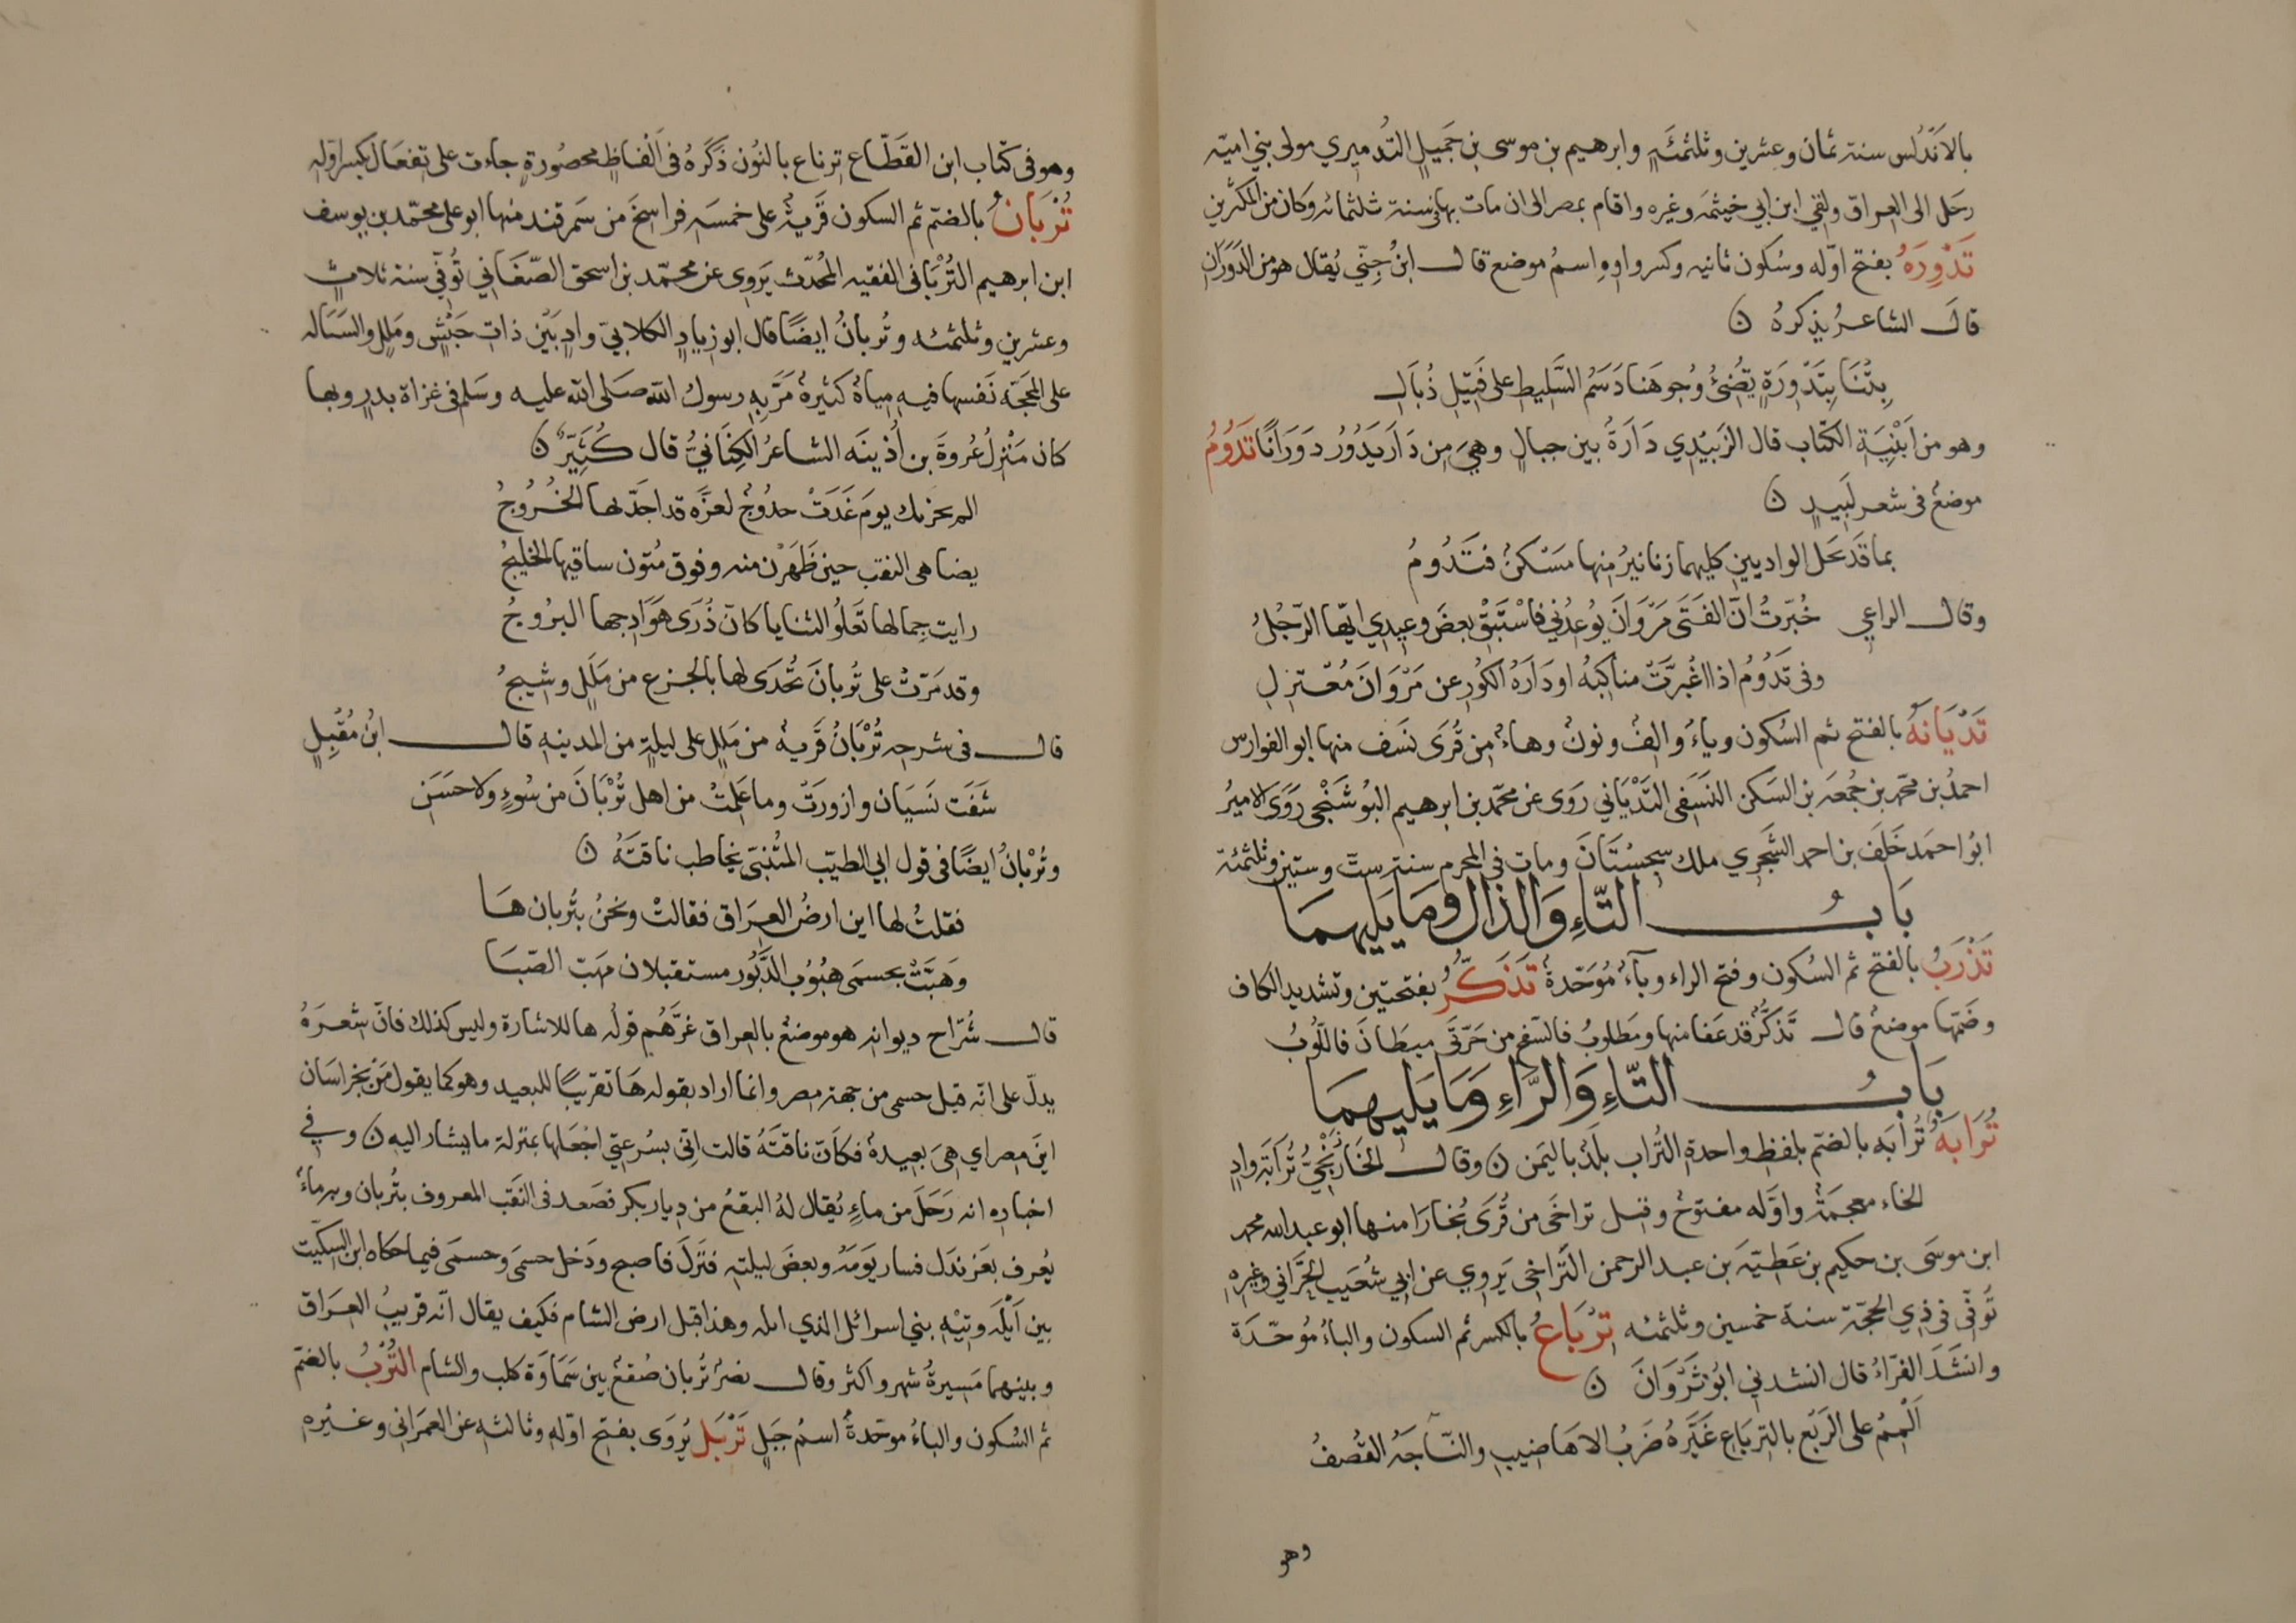 بالاَنْدَلُس سنة ثمان وعشرين وثلثمئةٍ وابرهيم بن موسى بن جَميلٍ التُدميري مولى بني اميّه
رحَل الى العراق ولقي ابن ابي خيثمه وغيره واقام بمصر الى ان مات بها في سنة ثلثمائه وكان من المكثرين
تَدْوِرَهُ بفتح اوّله وسُكون ثانيه وكسر واوهِ اسمُ موضع قال ابنُ جِنّي يُقال هو من الدَوَرَانِ
قالَ الشاعرُ يذكرهُ ن
بِتْنَا بِتَدْوِرَةٍ تُضِئُ وُجوهَنا دَسَمُ السَّليط على فَتيلِ ذُبَالِ
وهو من اَبْنِيَةِ الكتاب قال الزَبيْدي دَارَةُ بين جبالٍ وهيَ مِن دَارَ يَدُوُر دَوَرَانًا تَدُومُ
موضعٌ في شعر لَبيدٍ ن
بما قَد تَحَل الواديين كليهما زنانيرُ مِنها مَسْكنٌ فتَدُومُ
وقال الراعي خُبّرتُ انّ الفَتَى مَرْوَانَ يُوعِدُني فاسْتَبْقِ بعضَ وعيدي ايّها الرّجُلُ
وفي تَدُوُمُ اذا اغُبرَّتْ مناكبُهُ او دَارَهُ الكَورِ عن مَرْوَانَ مُعْتزِلِ
تَدْيَانَهُ بالفتح ثم السُكون وياءُ والِفُ ونونٌ وهاءُ مِن قُرَى نَسَف منها ابو الفوارس
احمدُ بن محمد بن جُمعَه بن السَكن النَسَفى التَدْيَاني رَوَى عن محمّد بن ابرهيم البُوشَنْجي رَوَى الاميرُ
ابوُ احمَد خَلَفَ بن احمد السَّجِزي ملك سِجِسْتَانَ ومات في المحرم سنة ستّ وستين وثلثمئة
بَابُ التّاءِ وَالذال ومَا يَليهمَا
تَذْرَبُ بالفتح ثم السُكون وفتح الراء وبآءٌ مُوَحّدةٌ تَذَكّرُ بفتحتين وتشديد الكاف
وضَمّها موضعٌ قال تَذَكّرُ قد عَفا منها ومَطلوبُ فالسَّفح من حَرّتَى ميطَانَ فاللُوبُ
بَابُ التّاءِ وَالرَّاءِ وَمَا يَليهمَا
تُرَابَهُ تُرابَه بالضم بلفظِ واحدة التُراب بلَدٌ باليَمن ن وقال الخَارَنْجيّ تُرَابَة وادٍ
الخاء معجمَةٌ واوّله مفتوحٌ وقيل تراخَى من قُرَى بُخارَا منها ابو عبد الله محمد
ابن موسَى بن حكيم بن عَطيّةَ بن عبد الرحمن التَراخى يَروي عن ابي شُعَيب الحَرّاني وغيره
تُوفّي في ذي الحجّة سنة خمسين وثلثمئه تِرْبَاعُ بالكسر ثم السكون والباءُ مُوحّدَة
وانشَدَ الفرّاءُ قال انشدني ابوُ ثَرْوَانَ ن
اَلْمِمُ على الرَبْع بالتربَاعِ غَيَّرهُ ضَربُ الاهَاضيبِ والنّاجَهُ العُصفُ
وهو
وهو فى كتاب ابن القَطّاع ترناع بالنوُن ذكَرهُ فى اَلفاظٍ محصُورةٍ جاءت على تِفعَال بكسر اوّله
تُرْبَانُ بالضمّ ثم السكون قَريةٌ على خمسَه فراسخَ من سَمرقند منها ابو على محمّد بن يوسف
ابن ابرهيم التُرْبَانى الفقيه المُحدّث يَروِى عن محمّد بن اسحق الصّغاني تُوفّي سنة ثلاثٍ
وعشرين وثلثمئه وتُربانُ ايضًا قال ابو زيادٍ الكلابيّ وادٍ بَيْن ذاتِ جَيْشٍ ومَللٍ والسَيَاله
على المحجّة نَفسها فيهِ مياهٌ كثيرةٌ مَرّ بهِ رسوك الله صَلى الله عليه وسَلم فى غزاة بدرٍ وبها
كان مَنْزِلُ عُروةَ بن اُذينَه الشاعرُ الكِنَانيُّ قال كُثَيّرٌ ن
الم يحزنك يومَ غَدَتْ حدُوُجُ لعزَّه قد اجَدّ لها الخُرُوجُ
يضاهى النقب حين ظَهَرْن منه وفوق مُتون ساقيها الخليجُ
رايت جمالها تَعلُو الثنايا كانّ ذُرَى هَوَادجها البرُوجُ
وقد مَرّتْ على تُربانَ تُحْدَى لها بالجزع من مَلَلٍ وشيجُ
قال فى شرحه تُرْبَانُ قَريةٌ من مَلَلٍ على ليلةٍ من المدينهِ قال ابنُ مُقْبلٍ
شَفَت نَسَيَان وازورَتْ وما عَلمتْ من اهل تُرْبَانَ من سُوءٍ ولا حَسَنِ
وتُرْبانُ ايضًا فى قول ابي الطيّب المتُنبّى يخاطب ناقَتَهُ ن
فقلتُ لها اين ارضُ العرَاق فقالتْ ونحنُ بتُربان هَا
وَهبَّتْ بحسمَى هبُوُبَ الدَّبُور مستقبلان مهَبّ الصّبَا
قال شُرّاح ديوانه هو موضعٌ بالعراق غرَّهُم قولُه ها للاشارة وليس كذلك فانّ شعرَهُ
يدلّ على انّه قبل حسمى من جهة مصر وانما اراد بقوله هَا تقريبًا للبعيد وهو كما يقول مَنْ بخراسَان
اينَ مصر اي هىَ بعيدةٌ فكانّ ناقتَهُ قالت انّى بسُرعتي اجعَلها بمنزلة ما يشار اليه ن وفي
اخباره انه رَحَلَ من ماءٍ يُقال لهُ البقعُ من ديار بكر فصَعد فى النَقب المعروف بتُربان وبه ماءٌ
يُعرف بعَرندَل فسار يَومَهُ وبعضَ ليلتهِ فنَزلَ فاصبح ودَخل حسمَى وحسمَى فيما حكاه ابن السكّيت
بين اَيْلَه وتيْهِ بني اسرائل الذي ايله وهذا قبل ارض الشام فكيف يقال انّه قريبُ العرَاق
وبينهما مَسيرةُ شهر واكثر وقال نصرُ تُربان صُقعٌ بين سَمَاوَة كلب والشام التُرْبُ بالضمّ
ثم السُكون والباءُ موحّدةٌ اسمُ جَبَلٍ تَرْبَل يُروَى بفتح اوّله وثالثه عن العمرَانى وغيْره